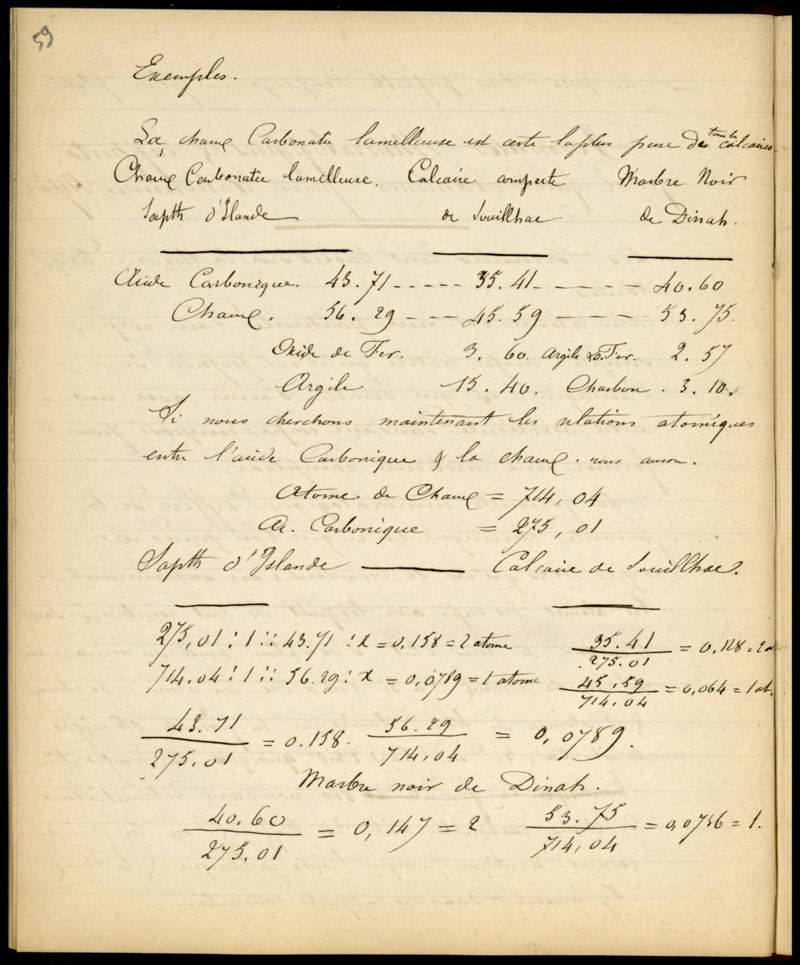 59
Exemples.
La chaux Carbonatée lamelleuse est cette la plus pure de toutes calcaires.
Chaux Carbonatée lamelleuse. Calcaire compacte Marbre Noir
Sapth d'Islande de Souillhac de Dinah.
Acide Carbonique. 43.71 ----- 35.41 ----- 40.60
Chaux. 56.29 --- 45.59 ---- 53.75.
Oxide de Fer. 3.60. Argile & o. Fer. 2.57
Argile 15.40. Charbon. 3.10.
Si nous cherchons maintenant les relations atomiques
entre l'acide Carbonique & la chaux. nous aurons.
Atome de Chaux = 714,04
Ac. Carbonique = 275,01
Sapth d'Islande ——— Calcaire de Souillhac.
275,01 : 1 :: 43.71 : x = 0,158 = 2 atome 35.41/275.01 = 0,128 = 2 at
714.04 : 1 :: 56.29 : x = 0,0789 = 1 atome 45,59/714.04 = 0,064 = 1 at.
43.71/275.01 = 0.158. 56.29/714,04 = 0,0789.
Marbre noir de Dinah.
40.60/275.01 = 0,147 = 2 53.75/714,04 = 0,0756 = 1.